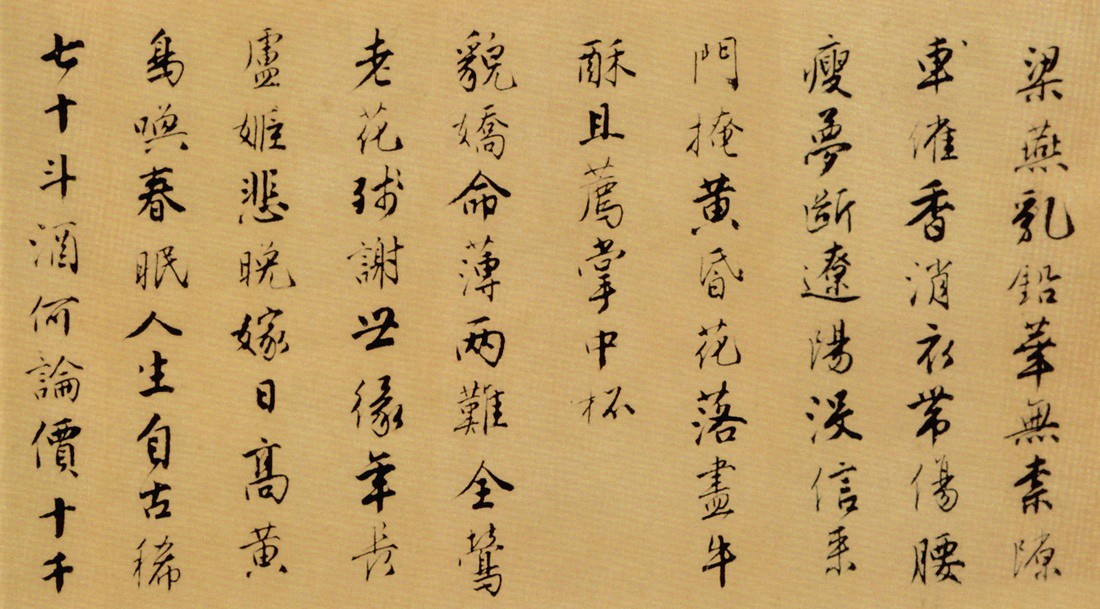 梁燕乳鉛華無索隙
車催香消衣帶傷腰
瘦夢斷遼陽沒信來
門掩黃昏花落盡牛
酥且薦掌中杯
貌嬌命薄兩難全鶯
老花殘謝世緣年長
盧姬悲晚嫁日高黃
鳥喚春眠人生自古稀
七十斗酒何論價十千